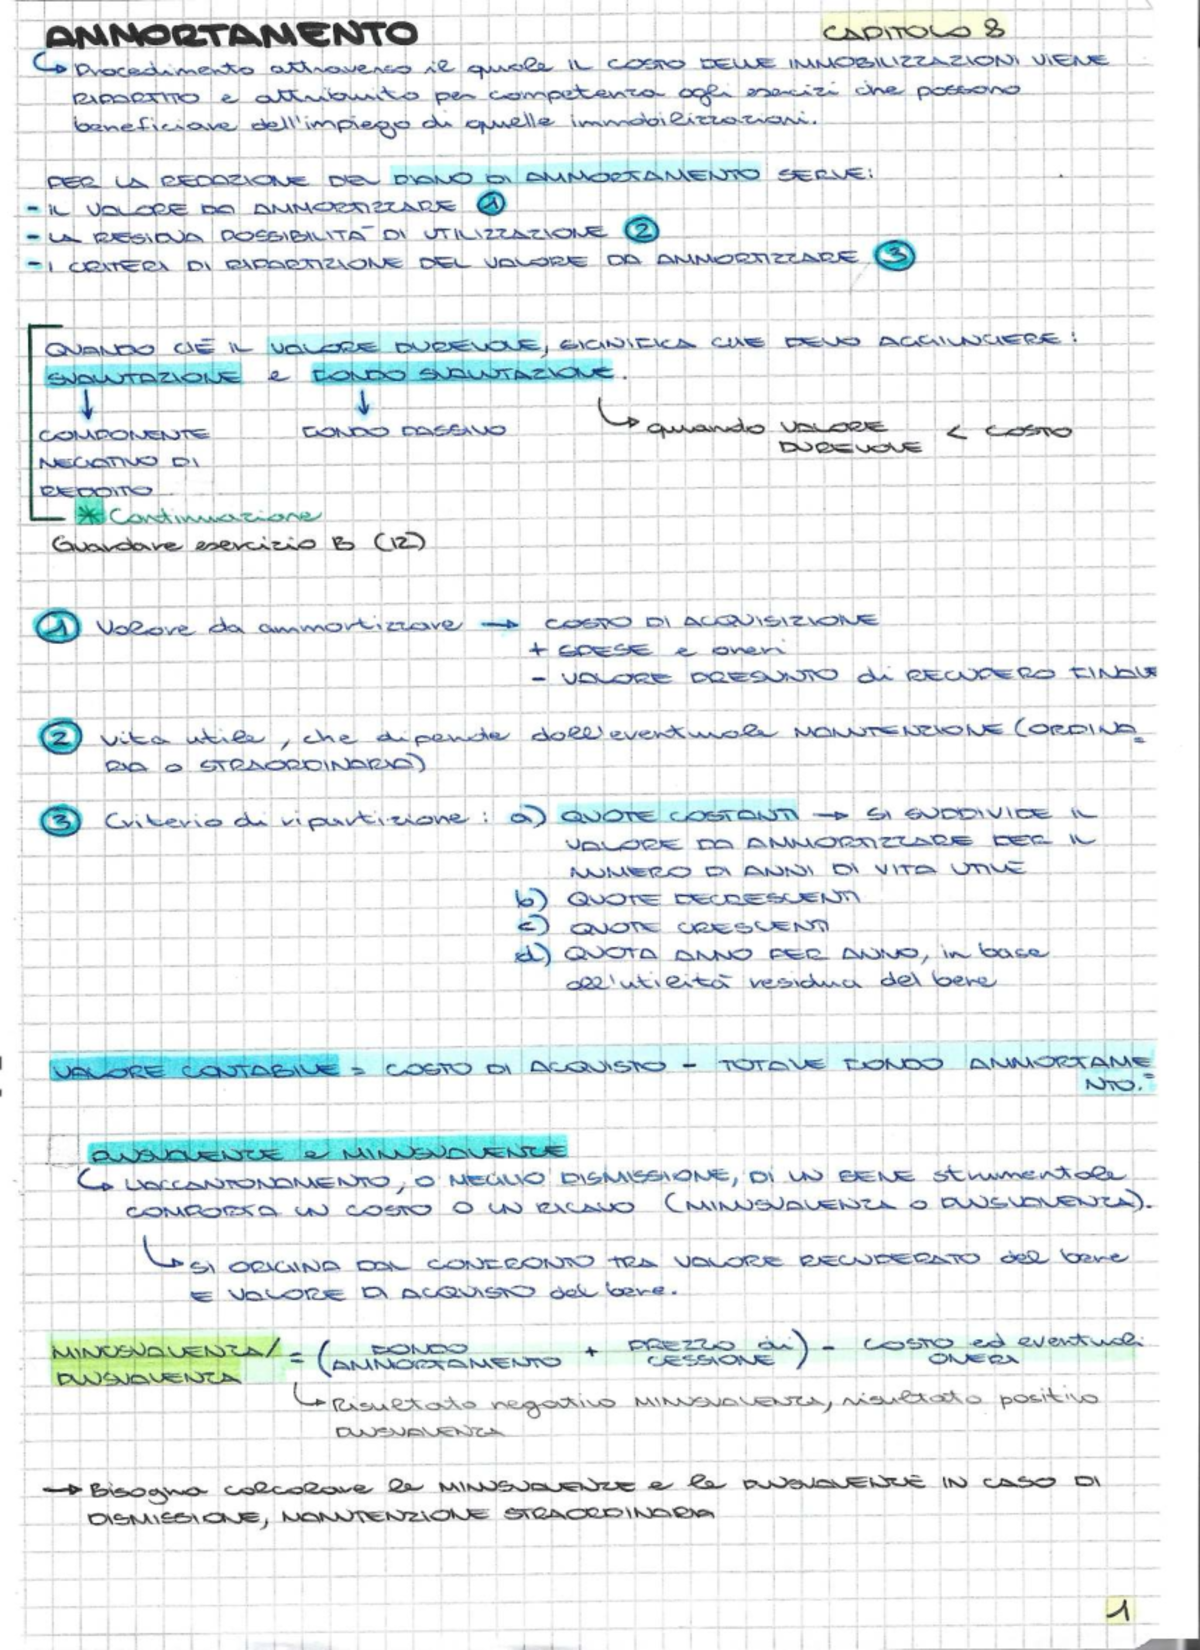 AMMORTAMENTO
CAPITOLO 8
↳ Procedimento attraverso il quale IL COSTO DELLE IMMOBILIZZAZIONI VIENE
RIPARTITO e attribuito per competenza agli esercizi che possono
beneficiare dell'impiego di quelle immobilizzazioni.
PER LA REDAZIONE DEL PIANO DI AMMORTAMENTO SERVE:
- IL VALORE DA AMMORTIZZARE 1
- LA RESIDUA POSSIBILITÀ DI UTILIZZAZIONE 2
- I CRITERI DI RIPARTIZIONE DEL VALORE DA AMMORTIZZARE 3
QUANDO C'È IL VALORE DUREVOLE, SIGNIFICA CHE DEVO AGGIUNGERE:
SVALUTAZIONE e FONDO SVALUTAZIONE.
↓ ↓
COMPONENTE NEGATIVO DI REDDITO
FONDO PASSIVO
↳ quando VALORE DUREVOLE < COSTO
* Continuazione
Guardare esercizio B (12)
1 Valore da ammortizzare → COSTO DI ACQUISIZIONE
+ SPESE e oneri
- VALORE PRESUNTO di RECUPERO FINALE
2 vita utile, che dipende dall'eventuale MANUTENZIONE (ORDINA=
RIA o STRAORDINARIA)
3 Criterio di ripartizione: a) QUOTE COSTANTI → SI SUDDIVIDE IL
VALORE DA AMMORTIZZARE PER IL
NUMERO DI ANNI DI VITA UTILE
b) QUOTE DECRESCENTI
c) QUOTE CRESCENTI
d) QUOTA ANNO PER ANNO, in base
all'utilità residua del bene
VALORE CONTABILE = COSTO DI ACQUISTO - TOTALE FONDO AMMORTAME=
NTO.
PLUSVALENZE e MINUSVALENZE
↳ L'ACCANTONAMENTO, O MEGLIO DISMISSIONE, DI UN BENE strumentale
COMPORTA UN COSTO O UN RICAVO (MINUSVALENZA O PLUSVALENZA).
↳ SI ORIGINA DAL CONFRONTO TRA VALORE RECUPERATO del bene
E VALORE DI ACQUISTO del bene.
MINUSVALENZA/ PLUSVALENZA = (FONDO AMMORTAMENTO + PREZZO di CESSIONE) - COSTO ed eventuali ONERI
↳ Risultato negativo MINUSVALENZA, risultato positivo
PLUSVALENZA
→ Bisogna calcolare le MINUSVALENZE e le PLUSVALENZE IN CASO DI
DISMISSIONE, MANUTENZIONE STRAORDINARIA
1